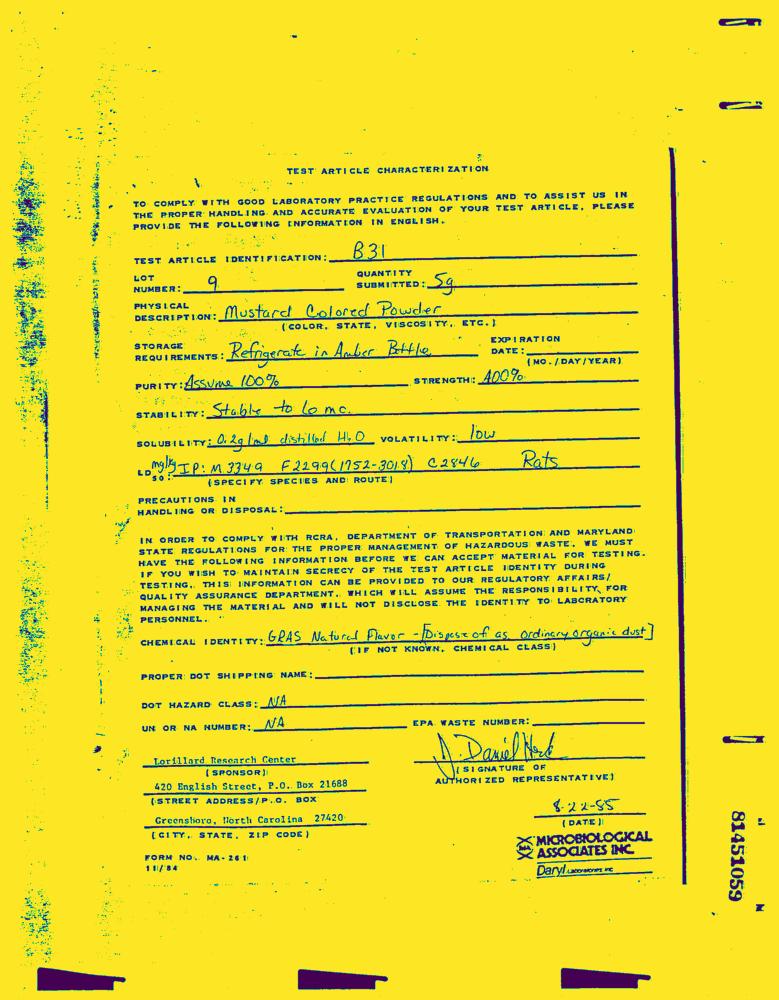 TEST ARTICLE CHARACTERIZATION
TO COMPLY WITH GOOD LABORATORY PRACTICE REGULATIONS AND TO ASSIST US IN
THE PROPER HANDLING AND ACCURATE EVALUATION OF YOUR TEST ARTICLE, PLEASE
PROVIDE THE FOLLOWING INFORMATION IN ENGLISH.
TEST ARTICLE IDENTIFICATION: B31
LOT NUMBER: 9 QUANTITY SUBMITTED: 5g
PHYSICAL DESCRIPTION: Mustard Colored Powder
(COLOR, STATE, VISCOSITY, ETC.)
STORAGE REQUIREMENTS: Refrigerate in Amber Bottle EXPIRATION DATE:
(MO./DAY/YEAR)
PURITY: Assume 100% STRENGTH: 100%
STABILITY: Stable to 6 mo.
SOLUBILITY: 0.2g/ml distilled H2O VOLATILITY: low
LD50: mg/kg IP: M 3349 F 2299(1752-3018) C 2846 Rats
(SPECIFY SPECIES AND ROUTE)
PRECAUTIONS IN
HANDLING OR DISPOSAL:
IN ORDER TO COMPLY WITH RCRA, DEPARTMENT OF TRANSPORTATION AND MARYLAND
STATE REGULATIONS FOR THE PROPER MANAGEMENT OF HAZARDOUS WASTE, WE MUST
HAVE THE FOLLOWING INFORMATION BEFORE WE CAN ACCEPT MATERIAL FOR TESTING.
IF YOU WISH TO MAINTAIN SECRECY OF THE TEST ARTICLE IDENTITY DURING
TESTING, THIS INFORMATION CAN BE PROVIDED TO OUR REGULATORY AFFAIRS/
QUALITY ASSURANCE DEPARTMENT, WHICH WILL ASSUME THE RESPONSIBILITY FOR
MANAGING THE MATERIAL AND WILL NOT DISCLOSE THE IDENTITY TO LABORATORY
PERSONNEL.
CHEMICAL IDENTITY: GRAS Natural Flavor - [Dispose of as ordinary organic dust]
(IF NOT KNOWN, CHEMICAL CLASS)
PROPER DOT SHIPPING NAME:
DOT HAZARD CLASS: N/A
UN OR NA NUMBER: N/A EPA WASTE NUMBER:
J. Daniel Heck
Lorillard Research Center
(SPONSOR)
(SIGNATURE OF
AUTHORIZED REPRESENTATIVE)
420 English Street, P.O. Box 21688
(STREET ADDRESS/P.O. BOX
8-22-85
(DATE)
Greensboro, North Carolina 27420
(CITY, STATE, ZIP CODE)
MICROBIOLOGICAL
ASSOCIATES INC.
Daryl LABORATORIES INC
FORM NO. MA-261
11/84
81451059